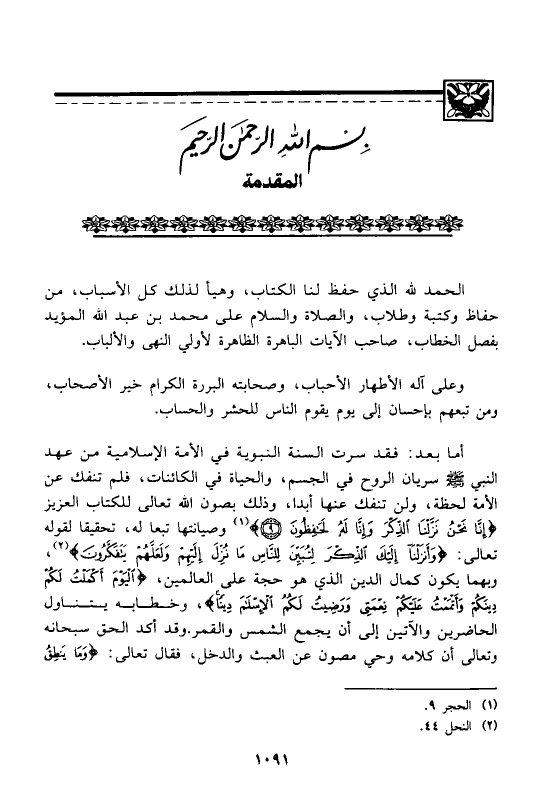 بسم الله الرحمن الرحيم
المقدمة
الحمد لله الذي حفظ لنا الكتاب، وهيأ لذلك كل الأسباب، من
حفاظ وكتبة وطلاب، والصلاة والسلام على محمد بن عبد الله المؤيد
بفصل الخطاب، صاحب الآيات الباهرة الظاهرة لأولي النهى والألباب.
وعلى آله الأطهار الأحباب، وصحابته البررة الكرام خير الأصحاب،
ومن تبعهم بإحسان إلى يوم يقوم الناس للحشر والحساب.
أما بعد: فقد سرت السنة النبوية في الأمة الإسلامية من عهد
النبي ﷺ سريان الروح في الجسم، والحياة في الكائنات، فلم تنفك عن
الأمة لحظة، ولن تنفك عنها أبدا، وذلك بصون الله تعالى للكتاب العزيز
﴿إِنَّا نَحْنُ نَزَّلْنَا ٱلذِّكْرَ وَإِنَّا لَهُۥ لَحَٰفِظُونَ ٩﴾(١) وصيانتها تبعا له، تحقيقا لقوله
تعالى: ﴿وَأَنزَلْنَآ إِلَيْكَ ٱلذِّكْرَ لِتُبَيِّنَ لِلنَّاسِ مَا نُزِّلَ إِلَيْهِمْ وَلَعَلَّهُمْ يَتَفَكَّرُونَ﴾(٢)،
وبهما يكون كمال الدين الذي هو حجة على العالمين، ﴿ٱلْيَوْمَ أَكْمَلْتُ لَكُمْ
دِينَكُمْ وَأَتْمَمْتُ عَلَيْكُمْ نِعْمَتِى وَرَضِيتُ لَكُمُ ٱلْإِسْلَٰمَ دِينًا﴾، وخطابه يتناول
الحاضرين والآتين إلى أن يجمع الشمس والقمر.وقد أكد الحق سبحانه
وتعالى أن كلامه وحي مصون عن العبث والدخل، فقال تعالى: ﴿وَمَا يَنطِقُ
(١) الحجر ٩.
(٢) النحل ٤٤.
١٠٩١